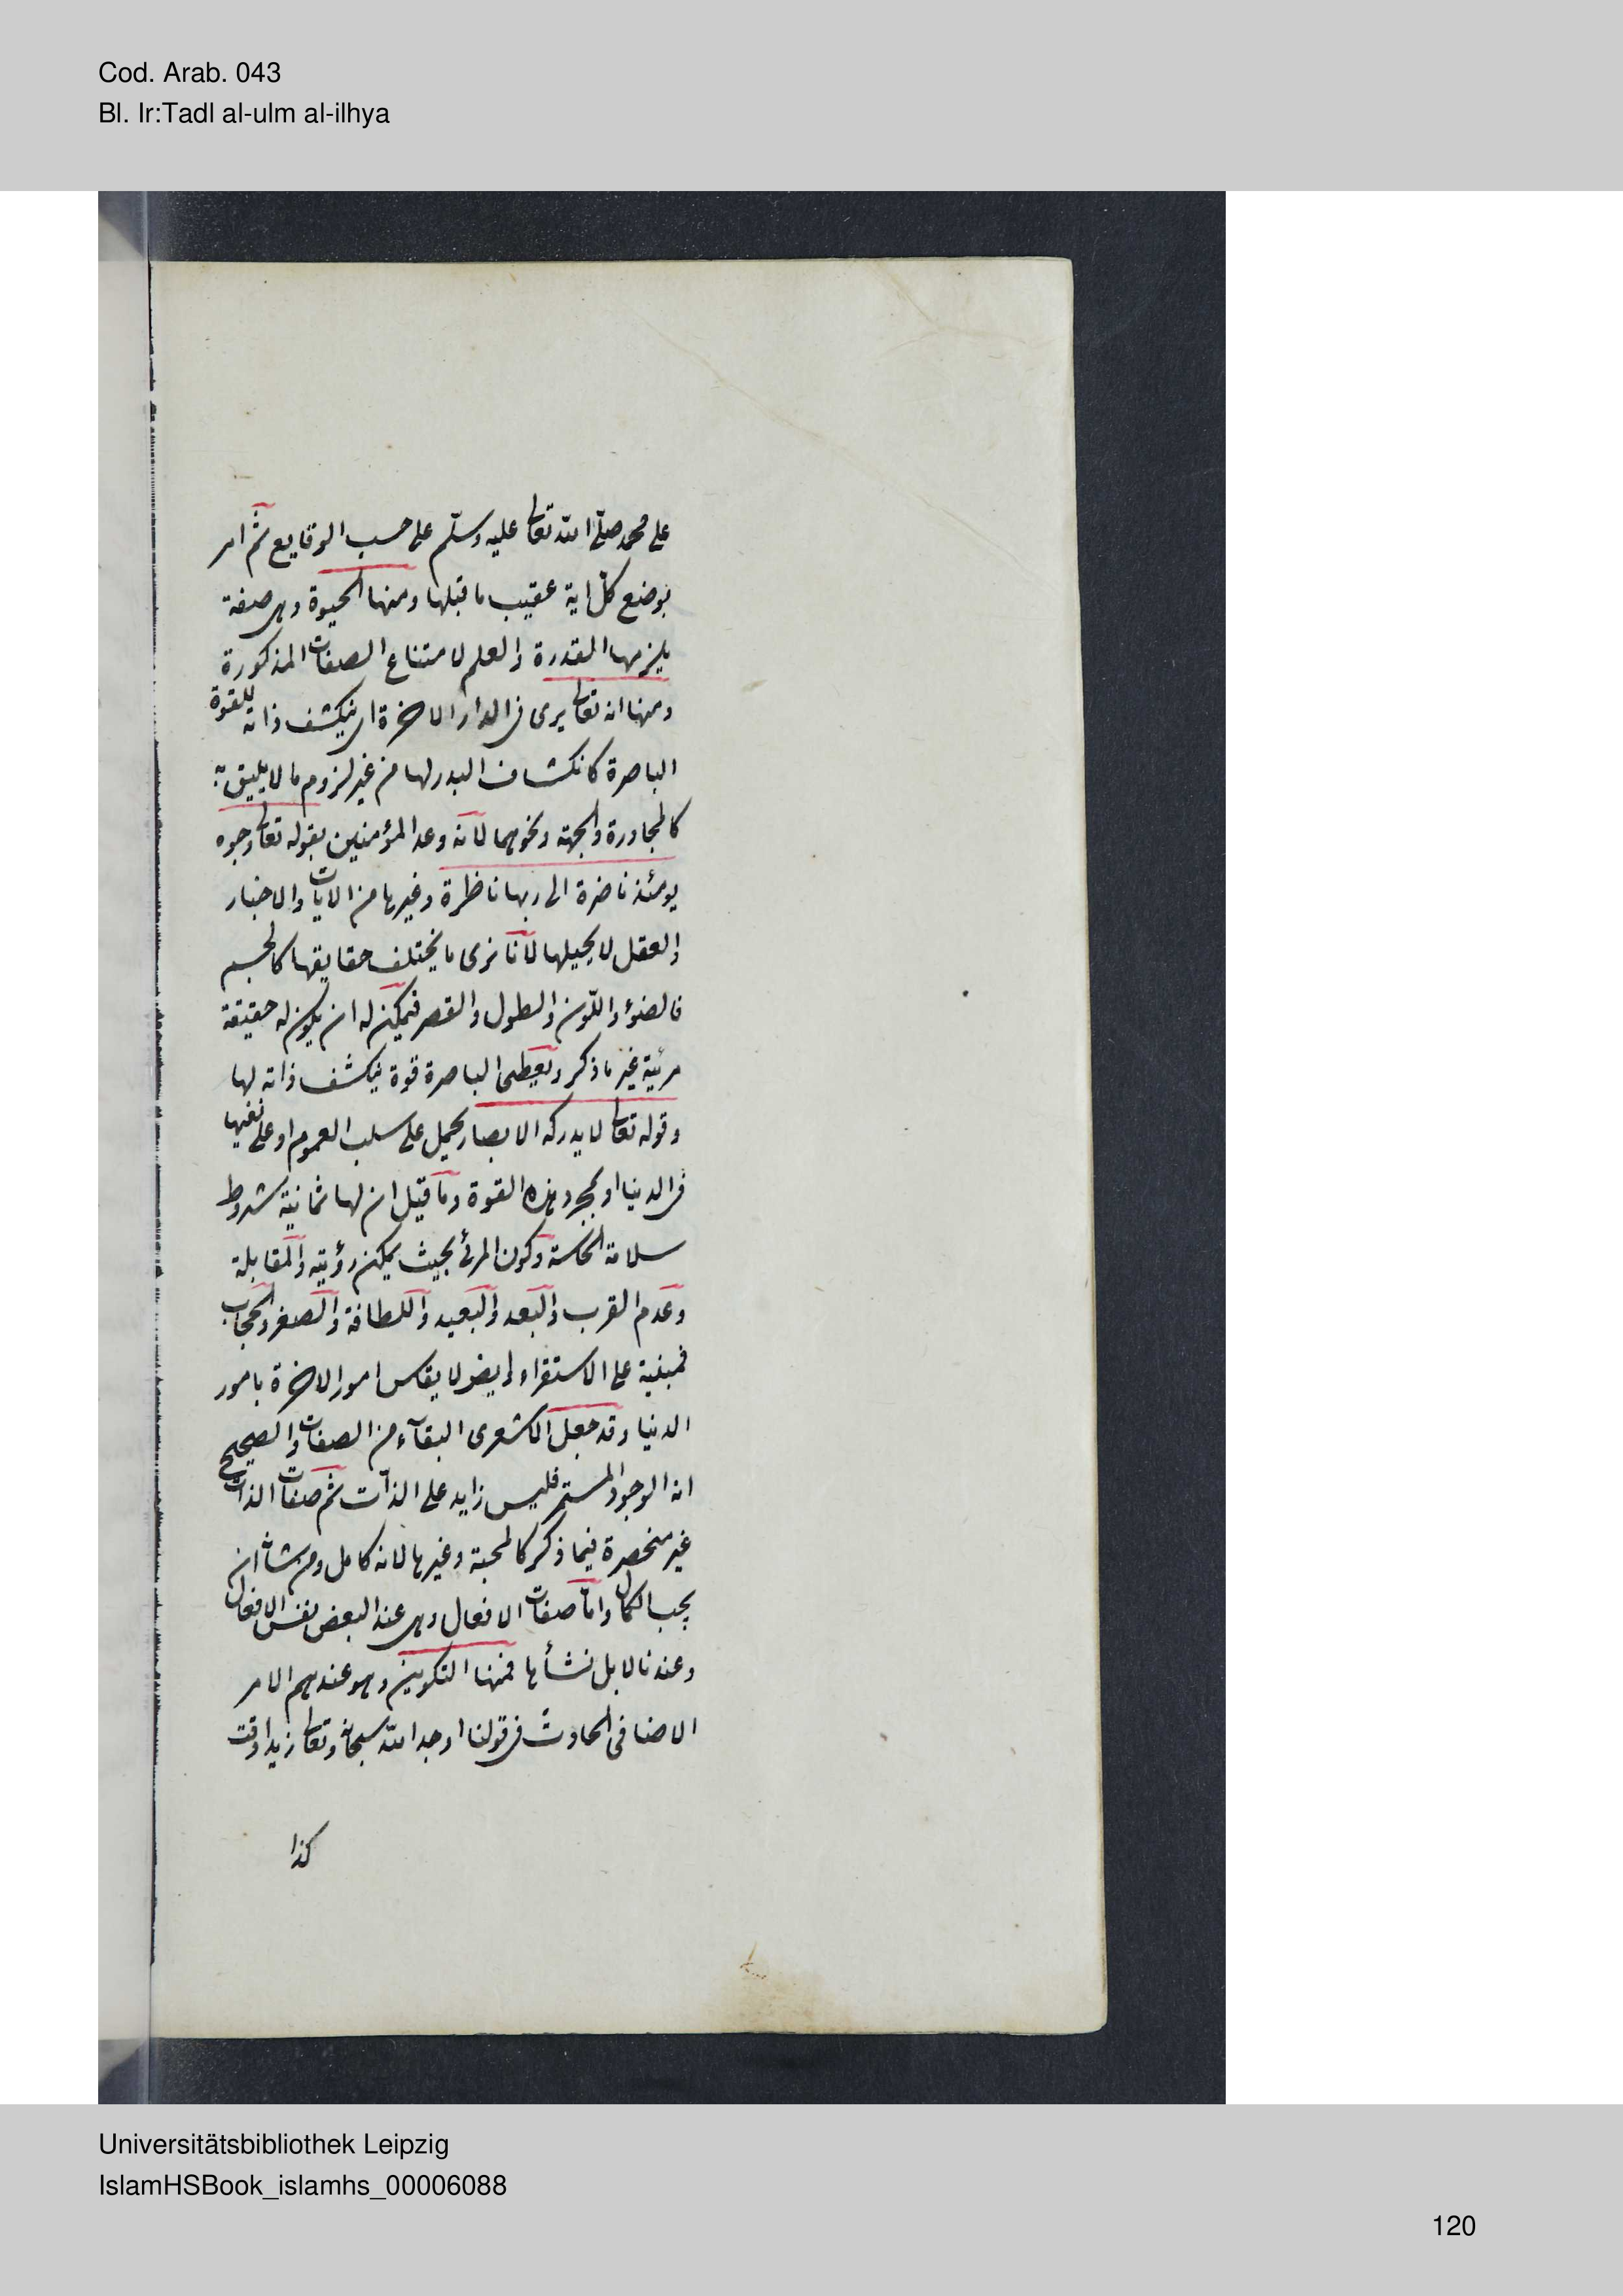 Cod. Arab. 043
Bl. Ir:Tadl al-ulm al-ilhya
على محمد صلى الله تعالى عليه وسلم على حسب الوقايع ثم امر
بوضع كل اية عقيب ما قبلها ومنها الحيوة وهى صفة
يلزمها القدرة والعلم لامتناع الصفات المذكورة
ومنها انه تعالى يرى فى الدار الاخرة اى ينكشف ذاته للقوة
الباصرة كانكشاف البدر لها من غير لزوم ما لا يليق به
كالمجاورة والجهة ونحوهما لانه وعد المؤمنين بقوله تعالى وجوه
يومئذ ناضرة الى ربها ناظرة وغيرها من الايات والاخبار
والعقل لا يحيلها لانا نرى ما يختلف حقايقها كالجسم
فالضوء واللون والطول والقصر فيمكن له ان يكون له حقيقة
مرئية غير ما ذكر ويعطى الباصرة قوة ينكشف ذاته لها
وقوله تعالى لا يدركه الابصار يحمل على سلب العموم او على نفيها
فى الدنيا او بمجرد هذه القوة وما قيل ان لها ثمانية شروط
سلامة الحاسة وكون المرئ بحيث يمكن رؤيته والمقابلة
وعدم القرب والبعد والبعيد واللطافة والصغر والحجاب
فمبنية على الاستقراء وايضا لا يقاس امور الاخرة بامور
الدنيا وقد جعل الاشعرى البقاء من الصفات والصحيح
انه الوجود المستمر فليس زايد على الذات ثم صفات الذات
غير منحصرة فيما ذكر كالمحبة وغيرها لانه كامل ومن شاء ان
يجب الكمال واما صفات الافعال وهى عند البعض نفس الافعال
وعندنا لا بل نشأها فمنها التكوين وهو عندهم الامر
الاضافى الحادث فى قولنا اوجد الله سبحانه وتعالى زيدا وقت
كذا
Universitätsbibliothek Leipzig
IslamHSBook_islamhs_00006088
120